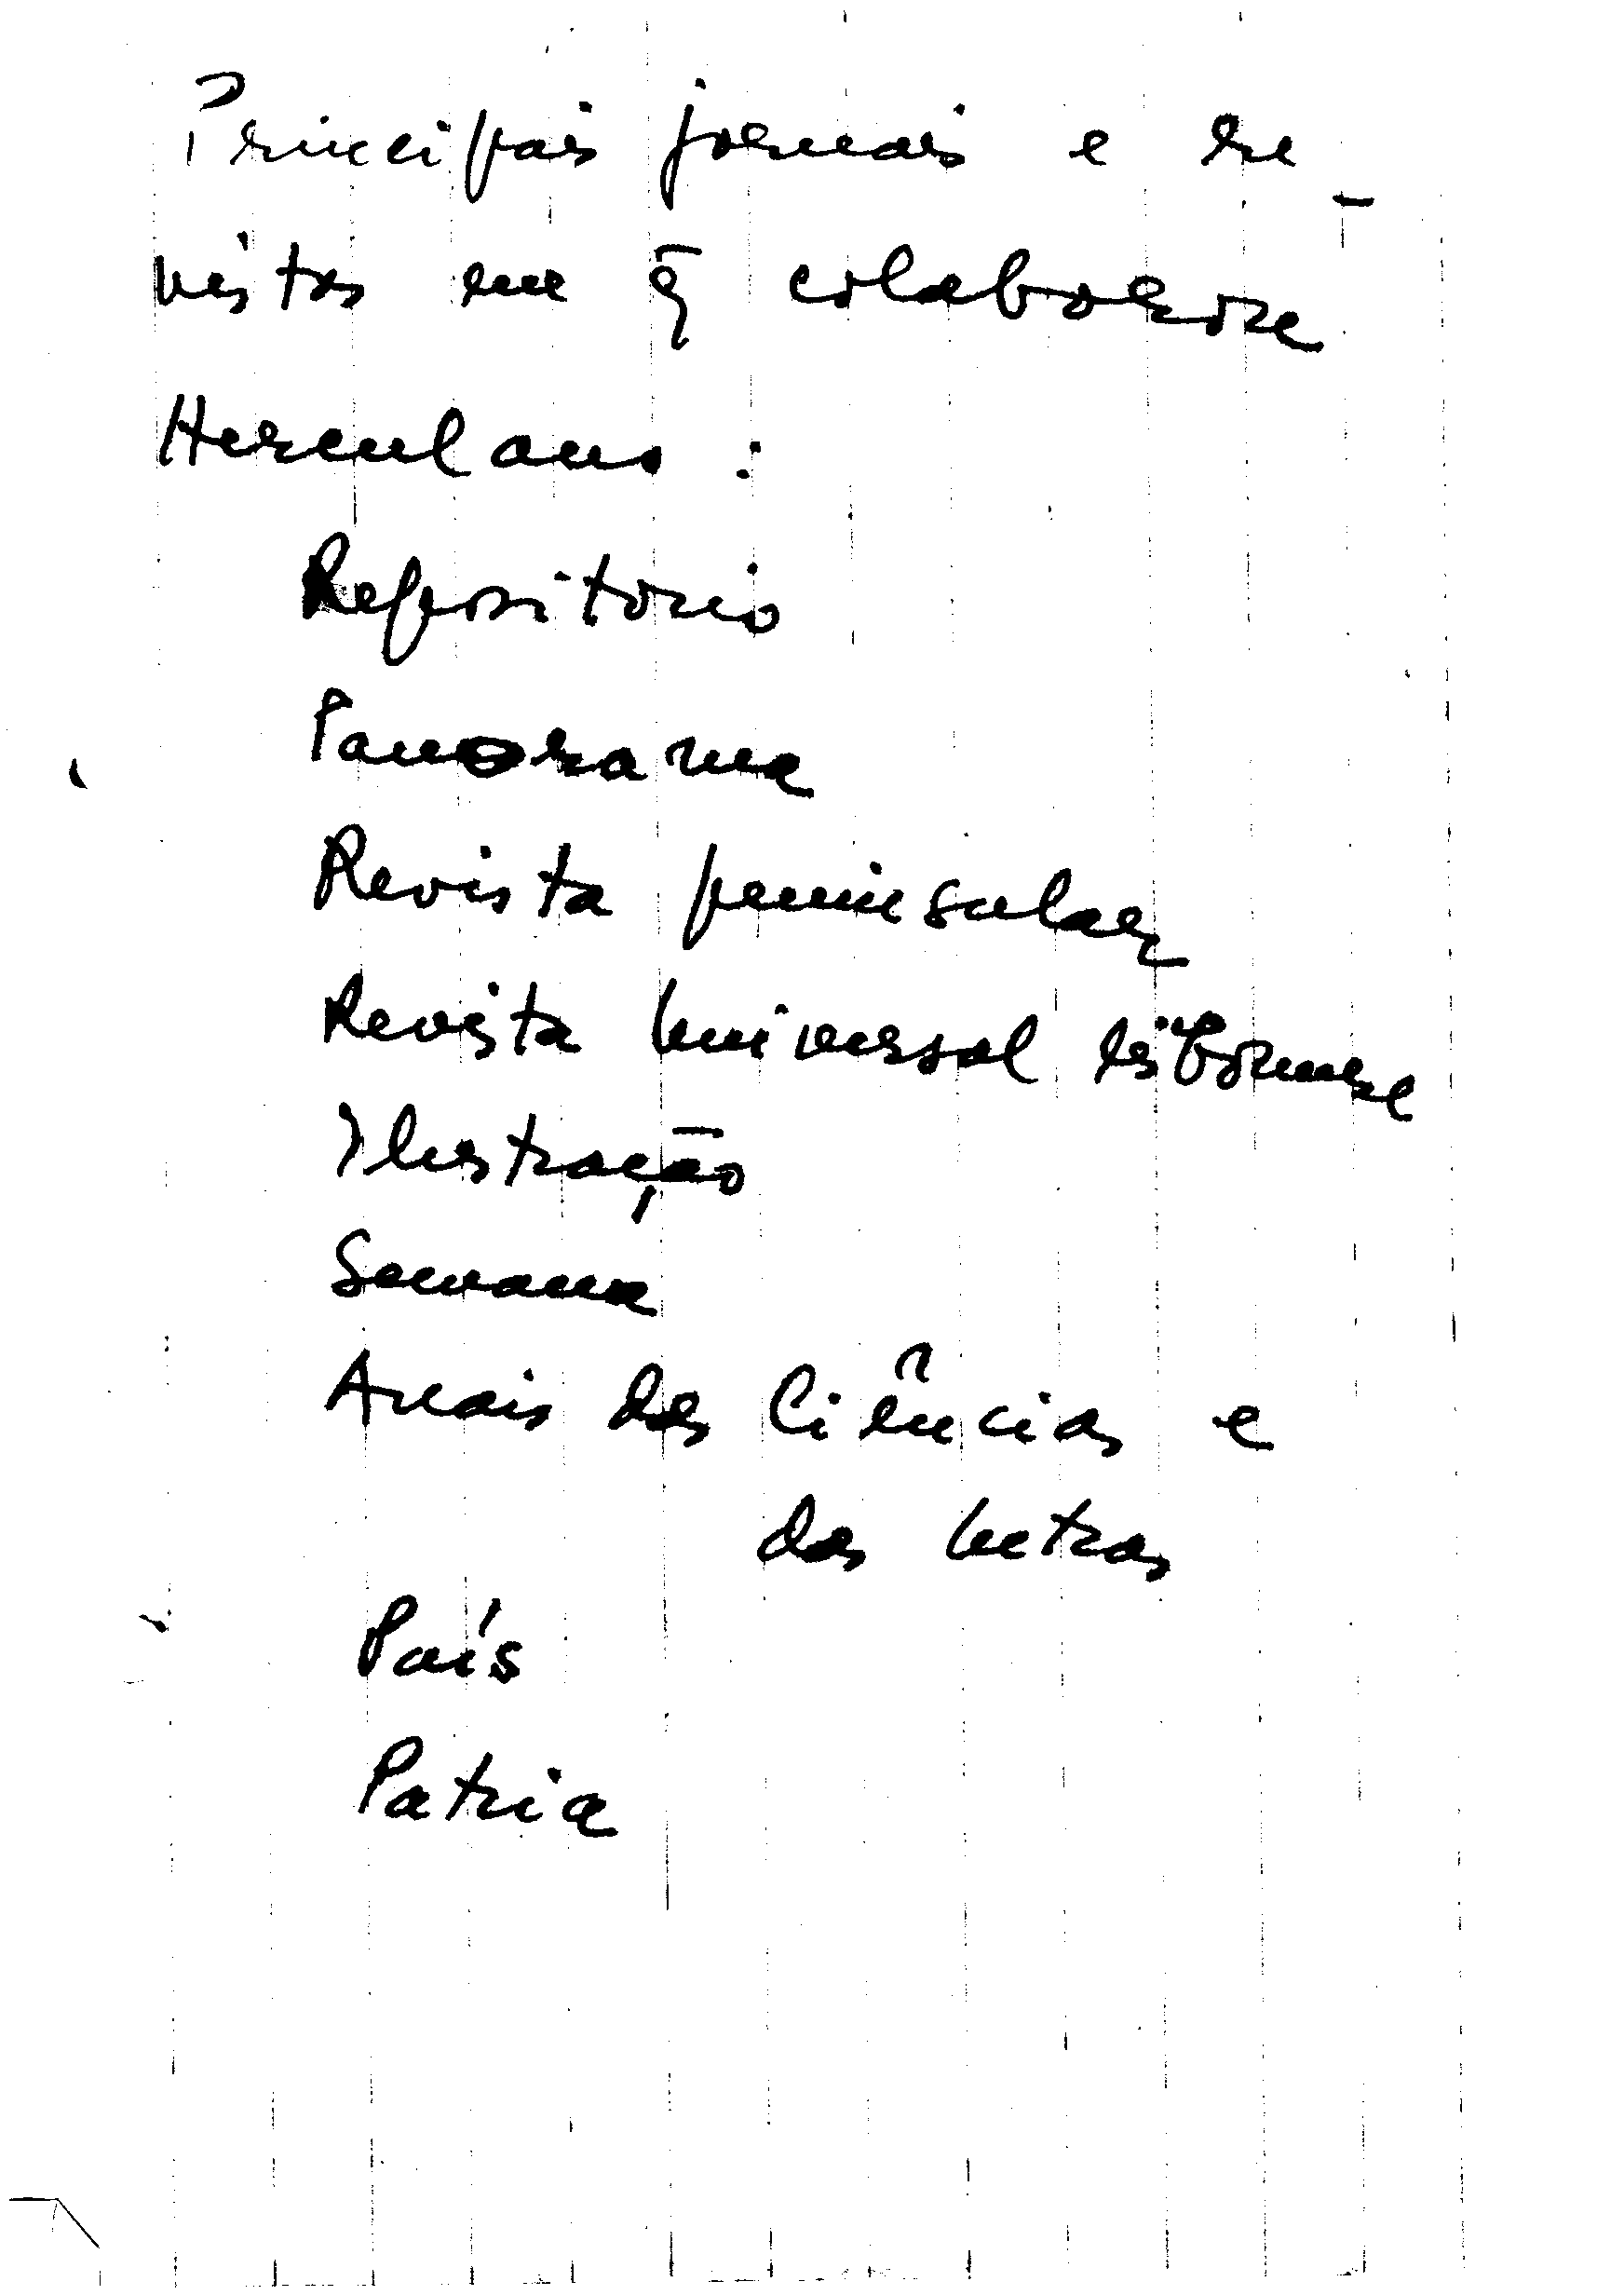 Principais jornais e re-
vistas em q̃ colaborou
Herculano:
Repositorio
Panorama
Revista peninsular
Revista Universal lisbonense
Ilustração
Semana
Anais das Ciências e
das letras
País
Patria